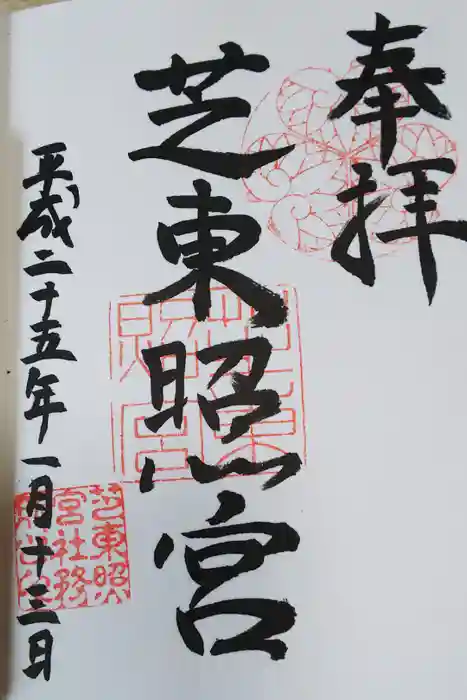 奉拝
芝東照宮
平成二十五年一月十三日
芝東照宮
芝東照
宮社務